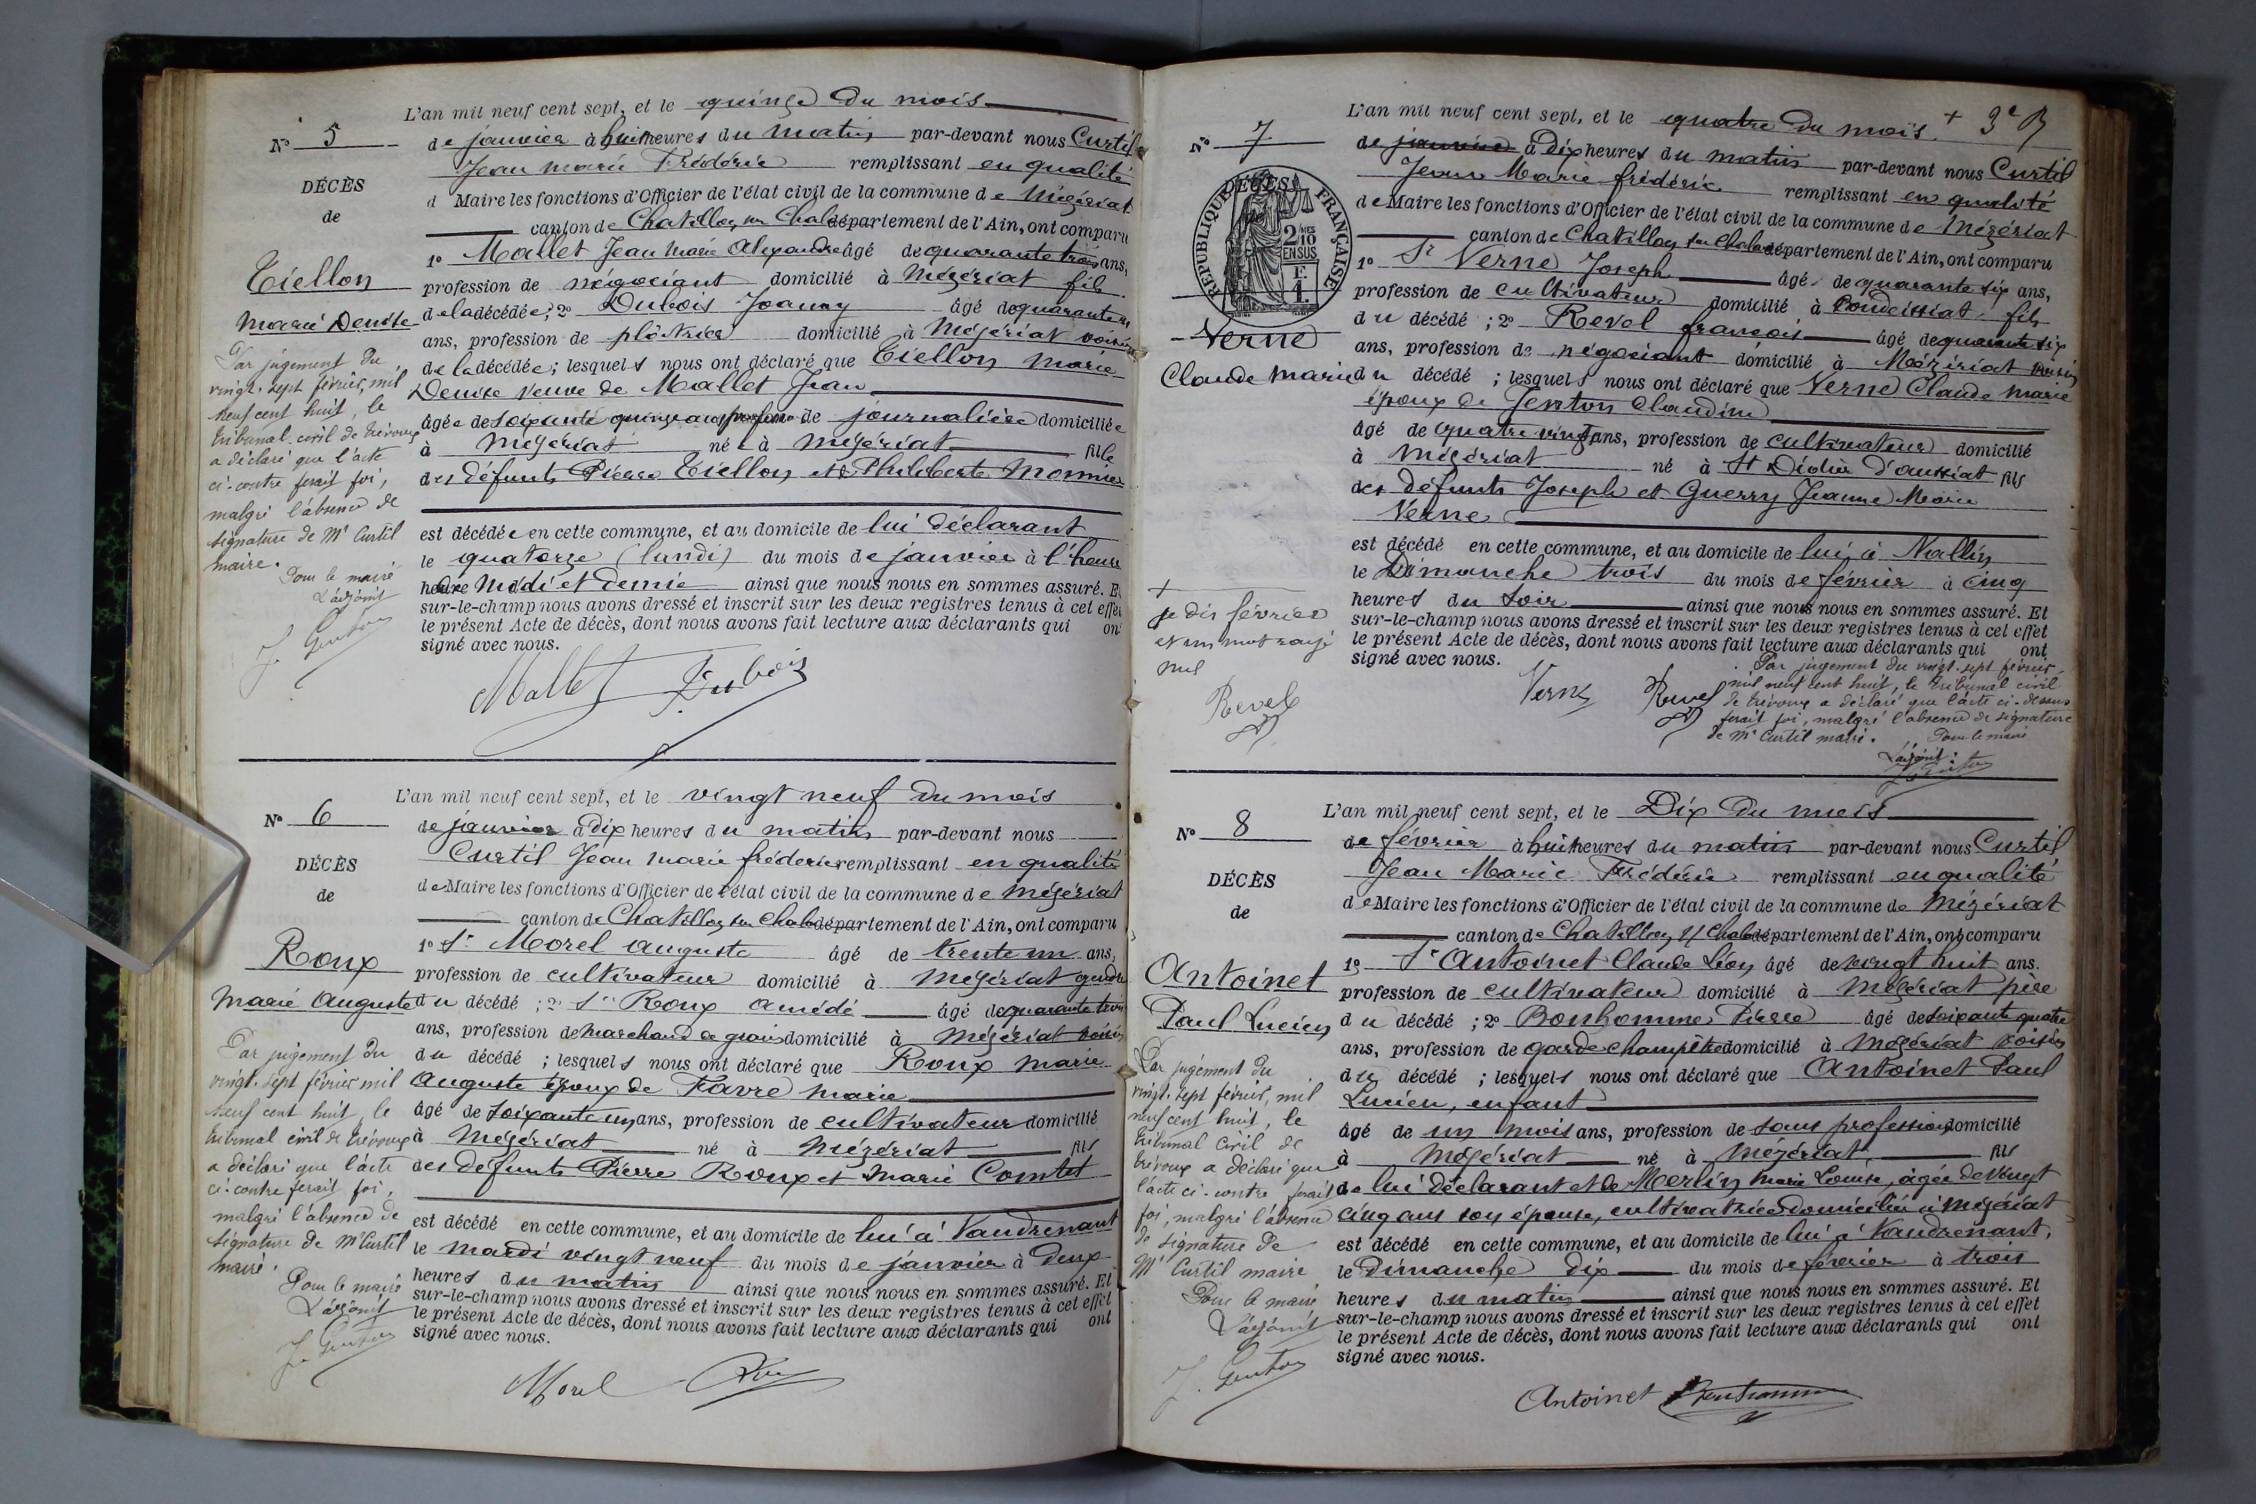 L'an mil neuf cent sept, et le quinze du mois
N° 5
de janvier à huit heures du matin par-devant nous Curtil
Jean Marie Frédéric remplissant en qualité
d Maire les fonctions d'Officier de l'état civil de la commune de Mézériat
canton de Chatillon sur Chal. département de l'Ain, ont comparu
1° Mallet Jean Marie Alexandre âgé de quarante trois ans,
profession de négociant domicilié à Mézériat fils
de la décédée; 2° Dubois Joanny âgé de quarante un
ans, profession de plâtrier domicilié à Mézériat voisin
de la décédée; lesquels nous ont déclaré que Tiellon Marie
Denise veuve de Mallet Jean
âgée de soixante quinze ans profession de journalière domiciliée
à Mézériat née à Mézériat fille
des défunts Pierre Tiellon et Philiberte Monnier
est décédée en cette commune, et au domicile de lui déclarant
le quatorze (lundi) du mois de janvier à l'heure
heure Midi et demie ainsi que nous nous en sommes assuré. Et
sur-le-champ nous avons dressé et inscrit sur les deux registres tenus à cet effet
le présent Acte de décès, dont nous avons fait lecture aux déclarants qui ont
signé avec nous.
Mallet Dubois
DÉCÈS
de
Tiellon
Marie Denise
Par jugement du
vingt-sept février, mil
neuf cent huit, le
tribunal civil de Trévoux
a déclaré que l'acte
ci-contre ferait foi,
malgré l'absence de
signature de Mr Curtil
maire.
Pour le maire
L'adjoint
L'an mil neuf cent sept, et le vingt neuf du mois
N° 6
de janvier à Dix heures du matin par-devant nous
Curtil Jean Marie frédéric remplissant en qualité
de Maire les fonctions d'Officier de l'état civil de la commune de Mézériat
canton de Chatillon sur Chal. département de l'Ain, ont comparu
1° Sr Morel Auguste âgé de trente un ans,
profession de cultivateur domicilié à Mézériat gendre
du décédé ; 2° Sr Roux Amédé âgé de quarante trois
ans, profession de marchand de grains domicilié à Mézériat voisin
du décédé ; lesquels nous ont déclaré que Roux Marie
Auguste époux de Favre Marie
âgé de soixante un ans, profession de cultivateur domicilié
à Mézériat né à Mézériat fils
des défunts Pierre Roux et Marie Comtet
est décédé en cette commune, et au domicile de lui à Vaudrenant
le mardi vingt neuf du mois de janvier à Deux
heures du matin ainsi que nous nous en sommes assuré. Et
sur-le-champ nous avons dressé et inscrit sur les deux registres tenus à cet effet
le présent Acte de décès, dont nous avons fait lecture aux déclarants qui ont
signé avec nous.
Morel Roux
DÉCÈS
de
Roux
Marie Auguste
Par jugement du
vingt-sept février mil
neuf cent huit, le
tribunal civil de Trévoux
a déclaré que l'acte
ci-contre ferait foi,
malgré l'absence de
signature de Mr Curtil
maire.
Pour le maire
L'adjoint
L'an mil neuf cent sept, et le quatre du mois + 3e
N° 7
de janvier à Dix heures du matin par-devant nous Curtil
Jean Marie frédéric remplissant en qualité
de Maire les fonctions d'Officier de l'état civil de la commune de Mézériat
canton de Chatillon sur Chal. département de l'Ain, ont comparu
1° Sr Verne Joseph âgé de quarante six ans,
profession de cultivateur domicilié à Condeissiat fils
du décédé ; 2° Revel françois âgé de quarante six
ans, profession de négociant domicilié à Mézériat voisin
du décédé ; lesquels nous ont déclaré que Verne Claude Marie
époux de Genton Claudine
âgé de quatre vingt ans, profession de cultivateur domicilié
à Mézériat né à St Didier d'aussiat fils
des défunts Joseph et Guerry Jeanne Marie
Verne
est décédé en cette commune, et au domicile de lui à
le Dimanche trois du mois de février à cinq
heures du soir ainsi que nous nous en sommes assuré. Et
sur-le-champ nous avons dressé et inscrit sur les deux registres tenus à cet effet
le présent Acte de décès, dont nous avons fait lecture aux déclarants qui ont
signé avec nous.
Verne Revel
Par jugement du vingt-sept février,
mil neuf cent huit, le tribunal civil
de Trévoux a déclaré que l'acte ci-dessus
ferait foi, malgré l'absence de signature
de Mr Curtil maire. Pour le maire
L'adjoint
RÉPUBLIQUE FRANÇAISE
DÉCÈS
2/10 EN SUS
F.
1
Verne
Claude Marie
+
je dis février
et un mot rayé
nul
Revel
L'an mil neuf cent sept, et le Dix du mois
N° 8
de février à huit heures du matin par-devant nous Curtil
Jean Marie Frédéric remplissant en qualité
de Maire les fonctions d'Officier de l'état civil de la commune de Mézériat
canton de Chatillon s/ Chal. département de l'Ain, ont comparu
1° Sr Antoinet Claude Léon âgé de vingt huit ans.
profession de cultivateur domicilié à Mézériat père
du décédé ; 2° Bonhomme Pierre âgé de soixante quatre
ans, profession de garde champêtre domicilié à Mézériat voisin
du décédé ; lesquels nous ont déclaré que Antoinet Paul
Lucien, enfant
âgé de un mois ans, profession de sans profession domicilié
à Mézériat né à Mézériat fils
de lui déclarant et de Merlin Marie Louise, âgée de vingt
cinq ans son épouse, cultivatrice domiciliée à Mézériat
est décédé en cette commune, et au domicile de lui à Vaudrenant,
le Dimanche dix du mois de février à trois
heures du matin ainsi que nous nous en sommes assuré. Et
sur-le-champ nous avons dressé et inscrit sur les deux registres tenus à cet effet
le présent Acte de décès, dont nous avons fait lecture aux déclarants qui ont
signé avec nous.
Antoinet Bonhomme
DÉCÈS
de
Antoinet
Paul Lucien
Par jugement du
vingt-sept février, mil
neuf cent huit, le
tribunal civil de
Trévoux a déclaré que
l'acte ci-contre ferait
foi, malgré l'absence
de signature de
Mr Curtil maire
Pour le maire
L'adjoint